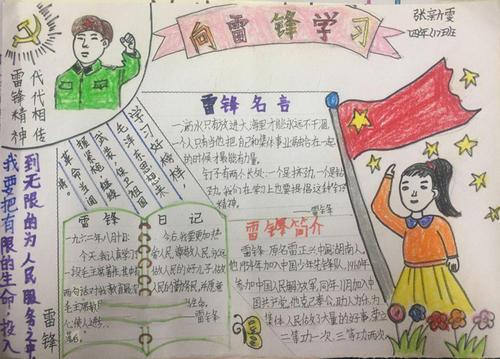 向雷锋学习
张新雯
四年(1)班
雷锋精神
代代相传
学习好榜样，
毛泽东思想来
握紧枪，保卫祖国
革命当闯
我要把有限的生命，投入
到无限的为人民服务之中
雷锋
雷锋名言
一滴水只有放进大海里才能永远不干涸，
一个人只有当他把自己和集体事业融合在一起
的时候才最能有力量。
钉子有两个长处：一个是挤劲，一个是钻
劲，我们在学习上也要提倡这种钉子
精神。
雷锋
雷锋日记
一九六二年八月十日
今天我认真学了
一段毛主席著作，其中有
两句话对我教育
毛主席教
心使人进步
今后，我要更加热
爱人民，尊敬人民，永远
做人民的好儿子，做
人民的勤务员，并愿意
雷锋
雷锋简介
雷锋，原名雷正兴，中国湖南人，
他1954年加入中国少年先锋队，1960年
参加中国人民解放军，同年11月加入中
国共产党，他克己奉公，助人为乐，为
集体、人民做了大量的好事，荣立
二等功一次，三等功两次